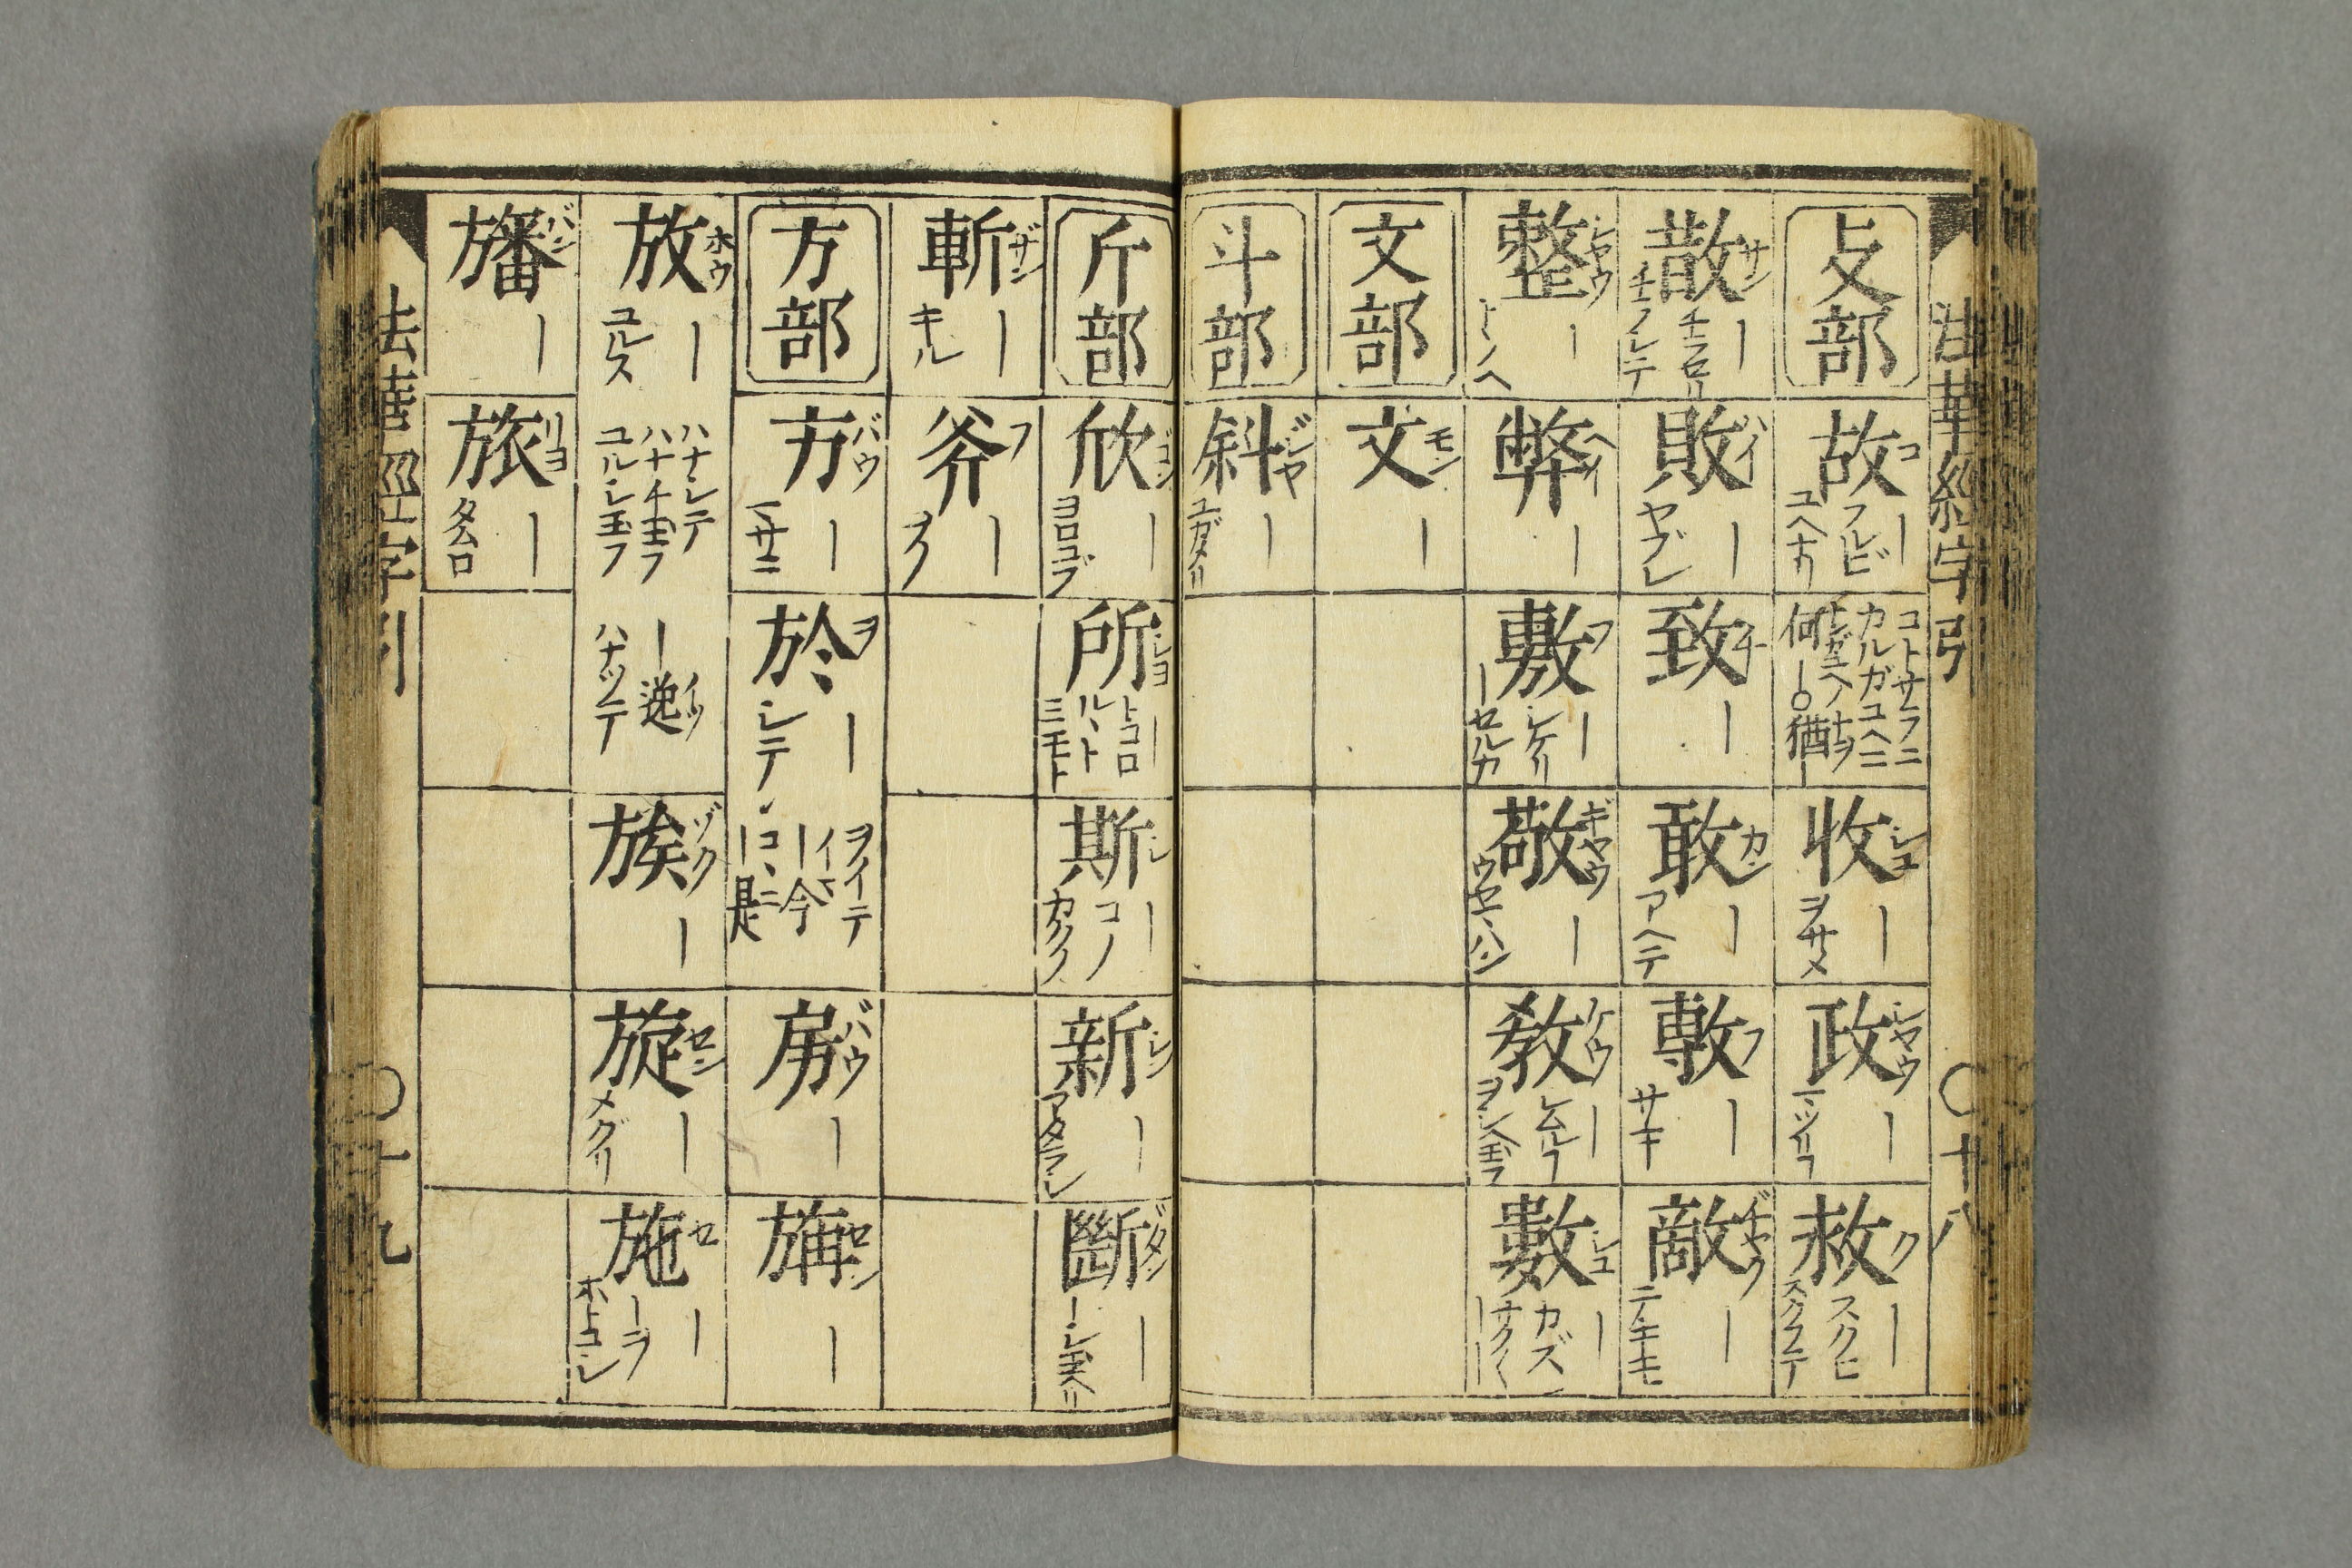 法華經字引 ○十八
攴部
故 コ ー フルビ ユヘナリ
コトサラニ カルガユヘニ
何ー○猶ー
收 シユ ー ヲサメ
政 シヤウ ー マツリコ
救 ク ー スクヒ スクフテ
散 サン ー チラロリ チラレテ
敗 ハイ ー ヤブレ
致 チ ー
敢 カン ー アヘテ
敷 フ ー サキ
敵 ヂヤウ ー ニノキモ
整 シヤウ ー トヽノヘ
弊 ヘイ ー
敷 フ ー シケリ ーセルカ
敬 ギヤウ ー ウヤマハン
教 ケウ ー シムルコ ヲシヘ玉フ
數 シユ ー カズ ーサク〱
文部
文 モン ー
斗部
斜 ジヤ ー ユガメリ
斤部
欣 ゴン ー ヨロコブ
所 シヨ ー トコロ ルヽト ミモト
斯 シ ー コノ カクノ
新 シン ー アタラシ
斷 ダン ー ーシ玉ヘリ
斬 ザン ー キル
斧 フ ー ヲノ
方部
方 バウ ー マサニ
於 ヲ ー シテ
ヲイテ イマ ー今 コヽニ ー是
房 バウ ー
旃 セン ー
放 ホウ ー ユルス
ハナシテ ハナチ玉フ ユルシ玉フ
ー逸 イツ ハナツテ
族 ゾク ー
旋 セン ー メグリ
施 セ ー ーラ ホトコシ
旛 バン ー
旅 リヨ ー タムロ
法華經字引 ○十九